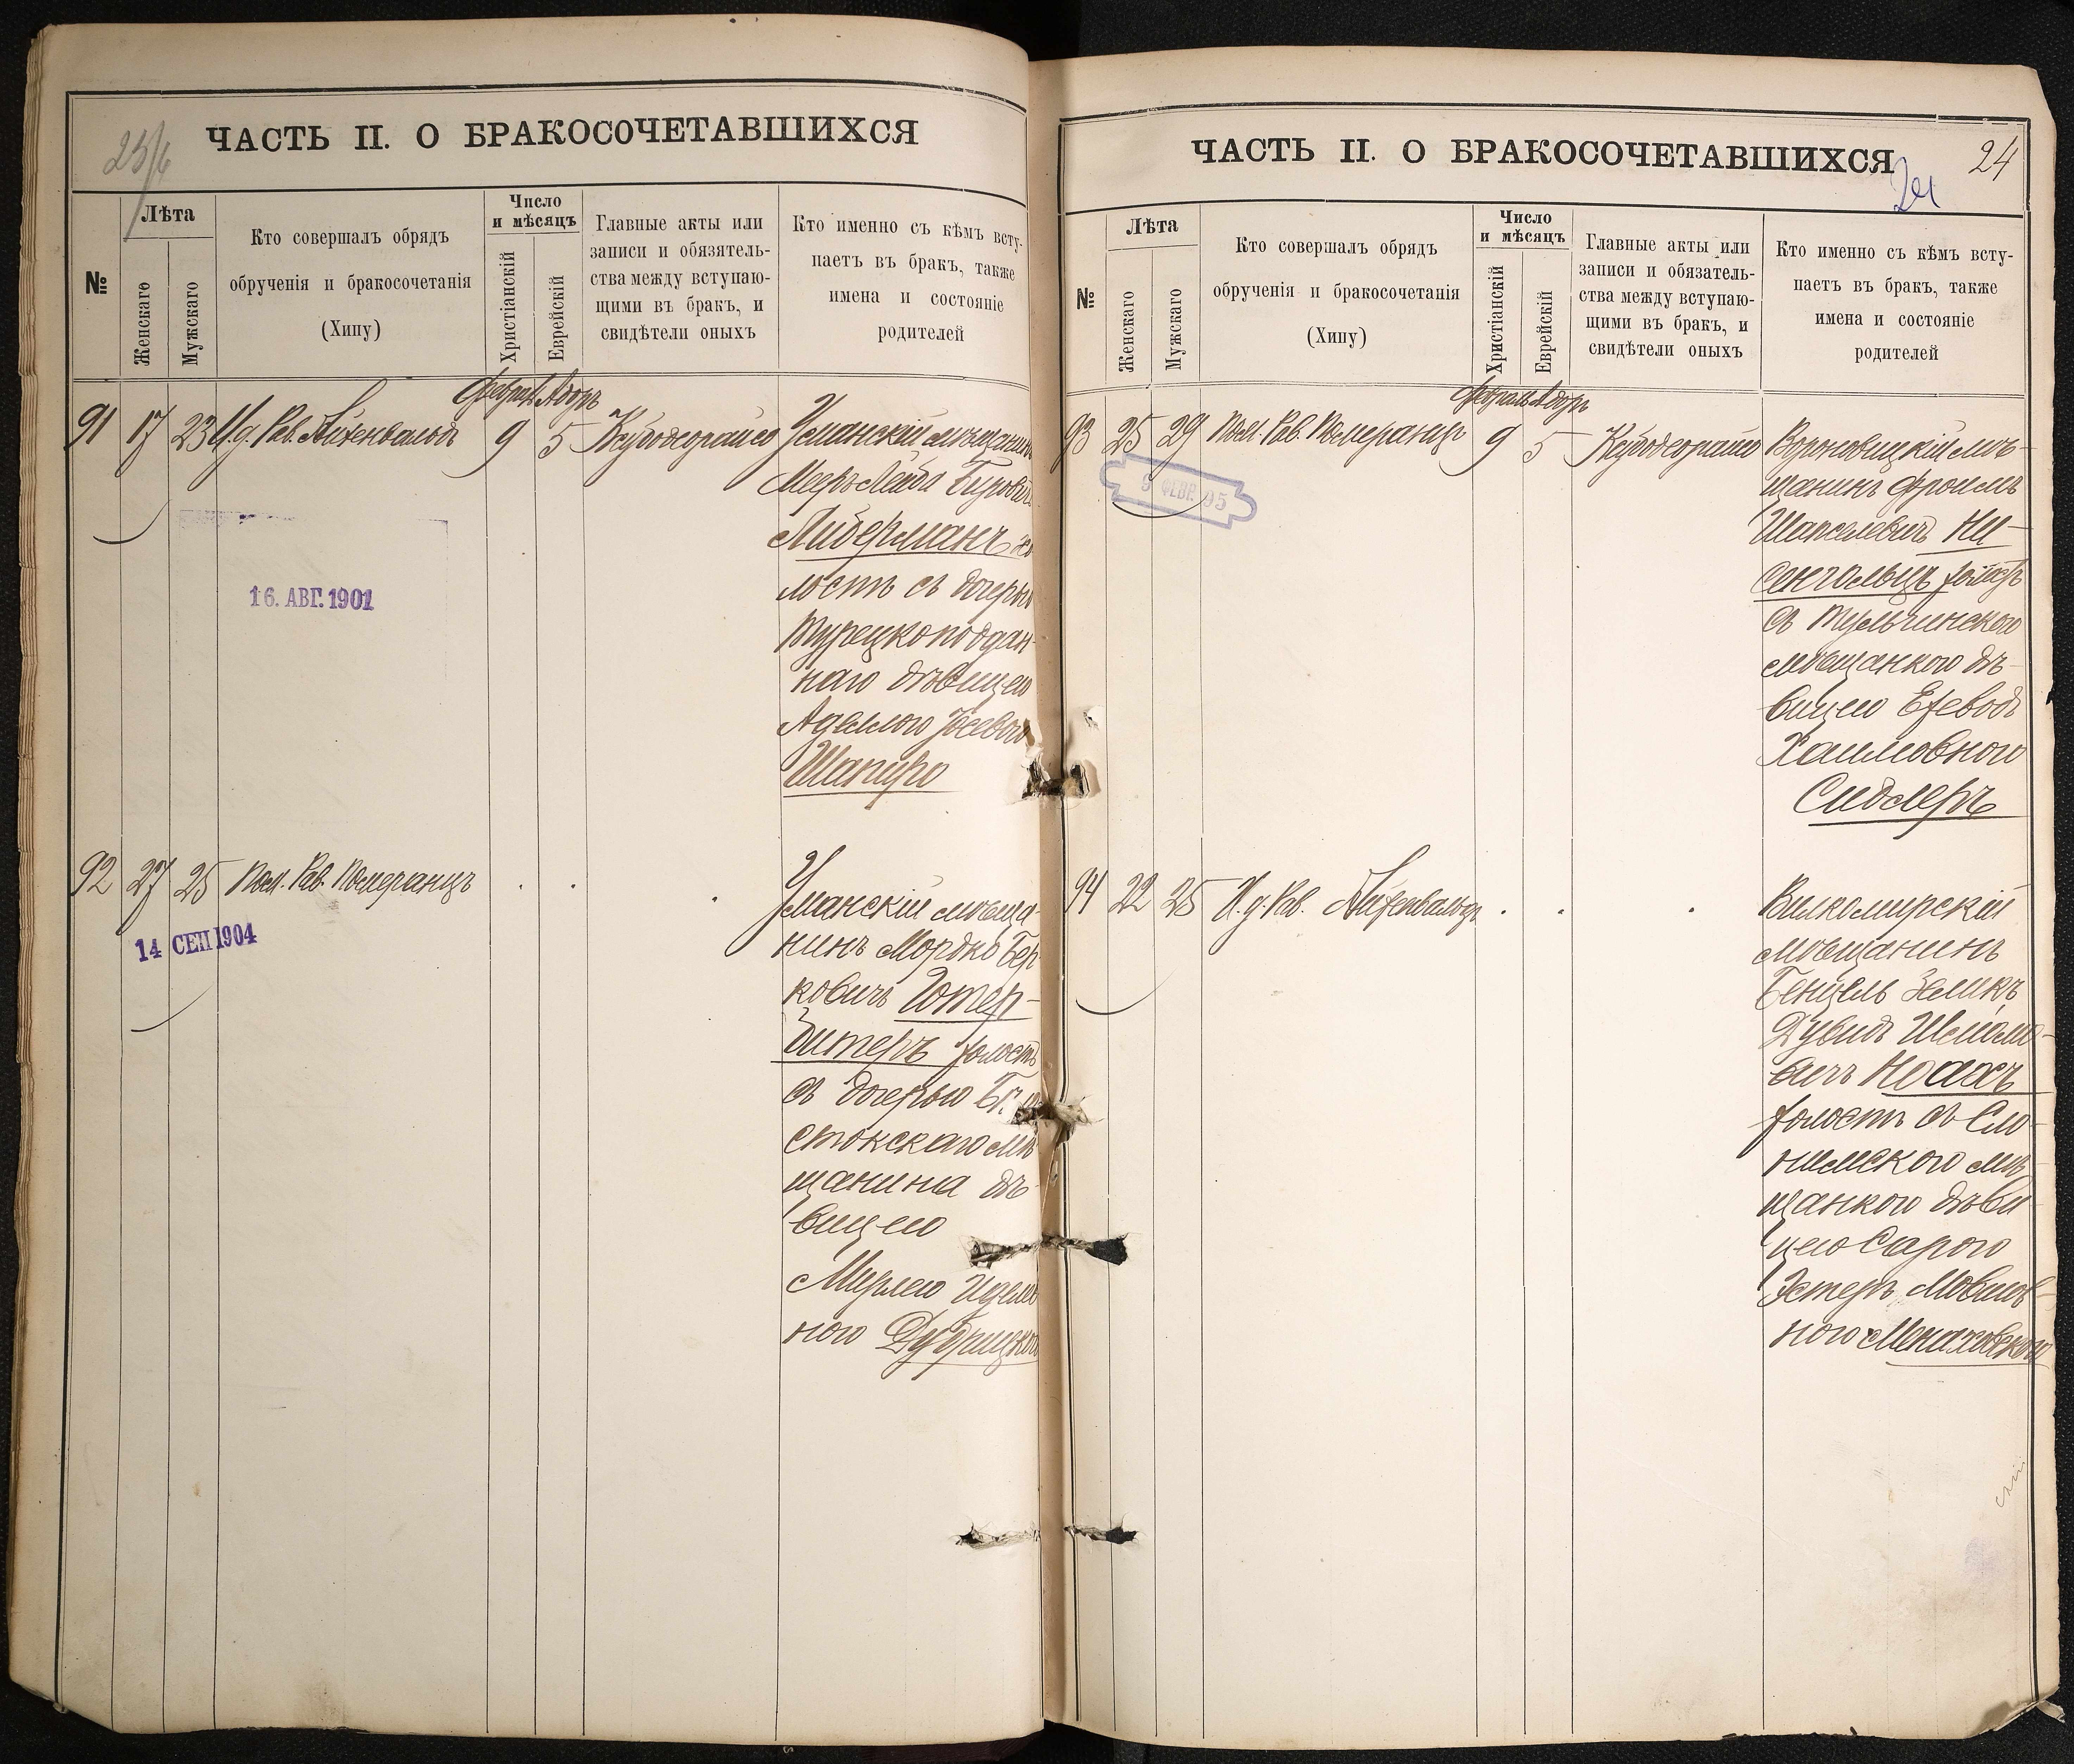 23/4
ЧАСТЬ II. О БРАКОСОЧЕТАВШИХСЯ
№
Лѣта
Женскаго
Мужскаго
Кто совершалъ обрядъ
обрученія и бракосочетанія
(Хипу)
Число
и мѣсяцъ
Христіанскій
Еврейскій
Главные акты или
записи и обязятель-
ства между вступаю-
щими въ бракъ, и
свидѣтели оныхъ
Кто именно съ кѣмъ всту-
паетъ въ бракъ, также
имена и состояніе
родителей
91 17 23 И.д. Рав. Айзенвальдъ
Февраля Адоръ
9 5
Умманскій мѣщанинъ
Мееръ Лейба Беровичъ
Либерманъ хо
лостъ съ дочерью
турецкоподдан-
наго дѣвицею
Аделлою Іосевою
Шапиро
16. АВГ. 1901
92 27 25 Пом. Рав. Померанцъ
Уманскій мѣща-
нинъ Мордко Бер
ковичъ Готер-
битеръ холостъ
съ дочерью
стокскаго мѣ
щанина дѣ-
вицею
Мирлею
ною
14 СЕП 1904
ЧАСТЬ II. О БРАКОСОЧЕТАВШИХСЯ
24
24
№
Лѣта
Женскаго
Мужскаго
Кто совершалъ обрядъ
обрученія и бракосочетанія
(Хипу)
Число
и мѣсяцъ
Христіанскій
Еврейскій
Главные акты или
записи и обязатель-
ства между вступаю-
щими въ бракъ, и
свидѣтели оныхъ
Кто именно съ кѣмъ всту-
паетъ въ бракъ, также
имена и состояніе
родителей
93 25 29 Пом. Рав. Померанцъ
Февраль Адоръ
9 5
Вороновицкій мѣ-
щанинъ Фроимъ
Шапселевичъ Ни-
сенгольцъ холостъ
съ тульчинскою
мѣщанкою дѣ-
вицею
Хаимовною
Сидлеръ
9 ФЕВР. 95
94 22 25 И.д. Рав. Айзенвальдъ
Вилкомирскій
мѣщанинъ
Бенцель Зеликъ
Дувидъ
вичъ Ноахъ
холостъ съ Сло-
нимскою мѣ
щанкою дѣви
цею Сарою
Эстеръ Мовшов-
ною Менаховскою